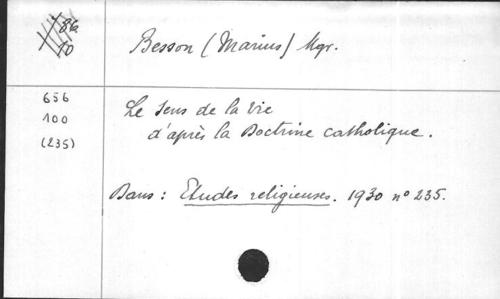 86
10
Besson (Marius) Mgr.
656
100
(235)
Le Sens de la Vie
d'après la Doctrine catholique.
Dans : Etudes religieuses. 1930 n° 235.